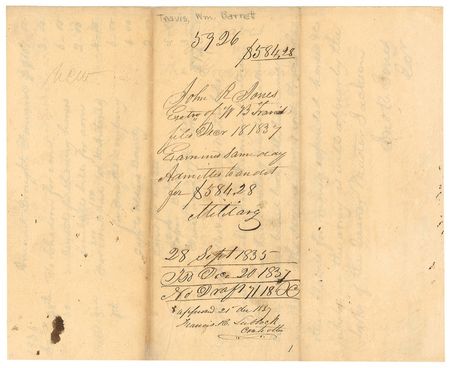 Travis, Wm. Barrett
5926
$584,28
new
John R Jones
Exctr of W B Travis
files Decr 18 1837
Examined same day
Admitted to audit
for $584.28
Military
28 Sept 1835
Dec 20 1837
No Draft 7118
approved 21 dec 1837
Francis R. Lubbock
Comptroller
1